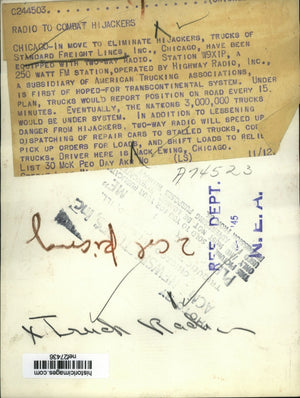 C244503.
RADIO TO COMBAT HIJACKERS
CHICAGO-IN MOVE TO ELIMINATE HIJACKERS, TRUCKS OF
STANDARD FREIGHT LINES, INC., CHICAGO, HAVE BEEN
EQUIPPED WITH TWO-WAY RADIO. STATION W9XIP, A
250 WATT FM STATION, OPERATED BY HIGHWAY RADIO, INC.,
A SUBSIDIARY OF AMERICAN TRUCKING ASSOCIATIONS,
IS FIRST OF HOPED-FOR TRANSCONTINENTAL SYSTEM. UNDER
PLAN, TRUCKS WOULD REPORT POSITION ON ROAD EVERY 15
MINUTES. EVENTUALLY, THE NATIONS 3,000,000 TRUCKS
WOULD BE UNDER SYSTEM. IN ADDITION TO LESSENING
DANGER FROM HIJACKERS, TWO-WAY RADIO WILL SPEED UP
DISPATCHING OF REPAIR CARS TO STALLED TRUCKS,
PICK UP ORDERS FOR LOADS, AND SHIFT LOADS TO RELIE
TRUCKS. DRIVER HERE IS JACK EWING, CHICAGO.
LIST 30 MCK PEO DAY AKR NO (LS) 11/12
A74523
REF. DEPT.
45
N.E.A.
2 Col
x Truck Radio
historicimages.com
nef27436